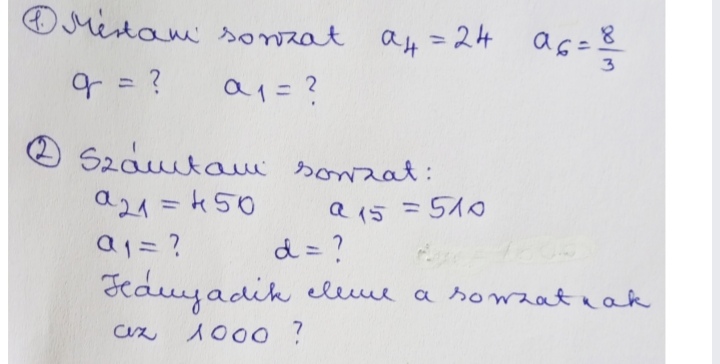 ① Mértani sorozat a₄ = 24 a₆ = 8/3
q = ? a₁ = ?
② Számtani sorozat:
a₂₁ = 450 a₁₅ = 510
a₁ = ? d = ?
Hányadik eleme a sorozatnak
az 1000 ?